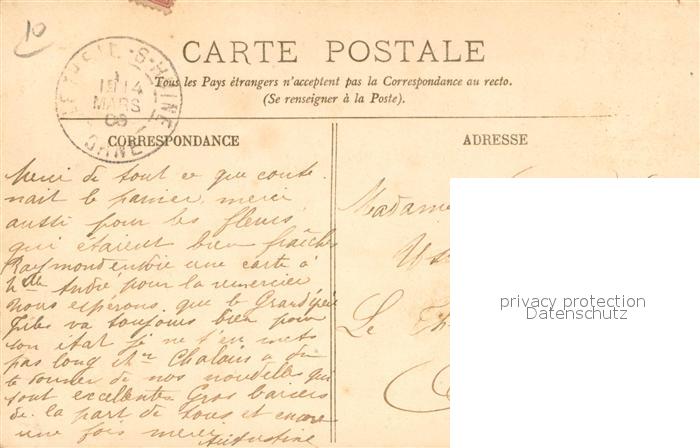 10
CARTE POSTALE
Tous les Pays étrangers n'acceptent pas la Correspondance au recto.
(Se renseigner à la Poste).
14
MARS
ORNE
CORRESPONDANCE
ADRESSE
Merci de tout ce que conte
nait le panier, merci
aussi pour les fleurs
qui étaient bien fraîches
Raymond envoie une carte à
Mlle André pour la remercier
Nous espérons que le Grand père
va toujours bien pour
son état je ne t'en mets
pas long Chalais a dû
te donner de nos nouvelles qui
sont excellentes Gros baisers
de la part de tous et encore
une fois merci
Augustine
Madame
Le Th
privacy protection
Datenschutz